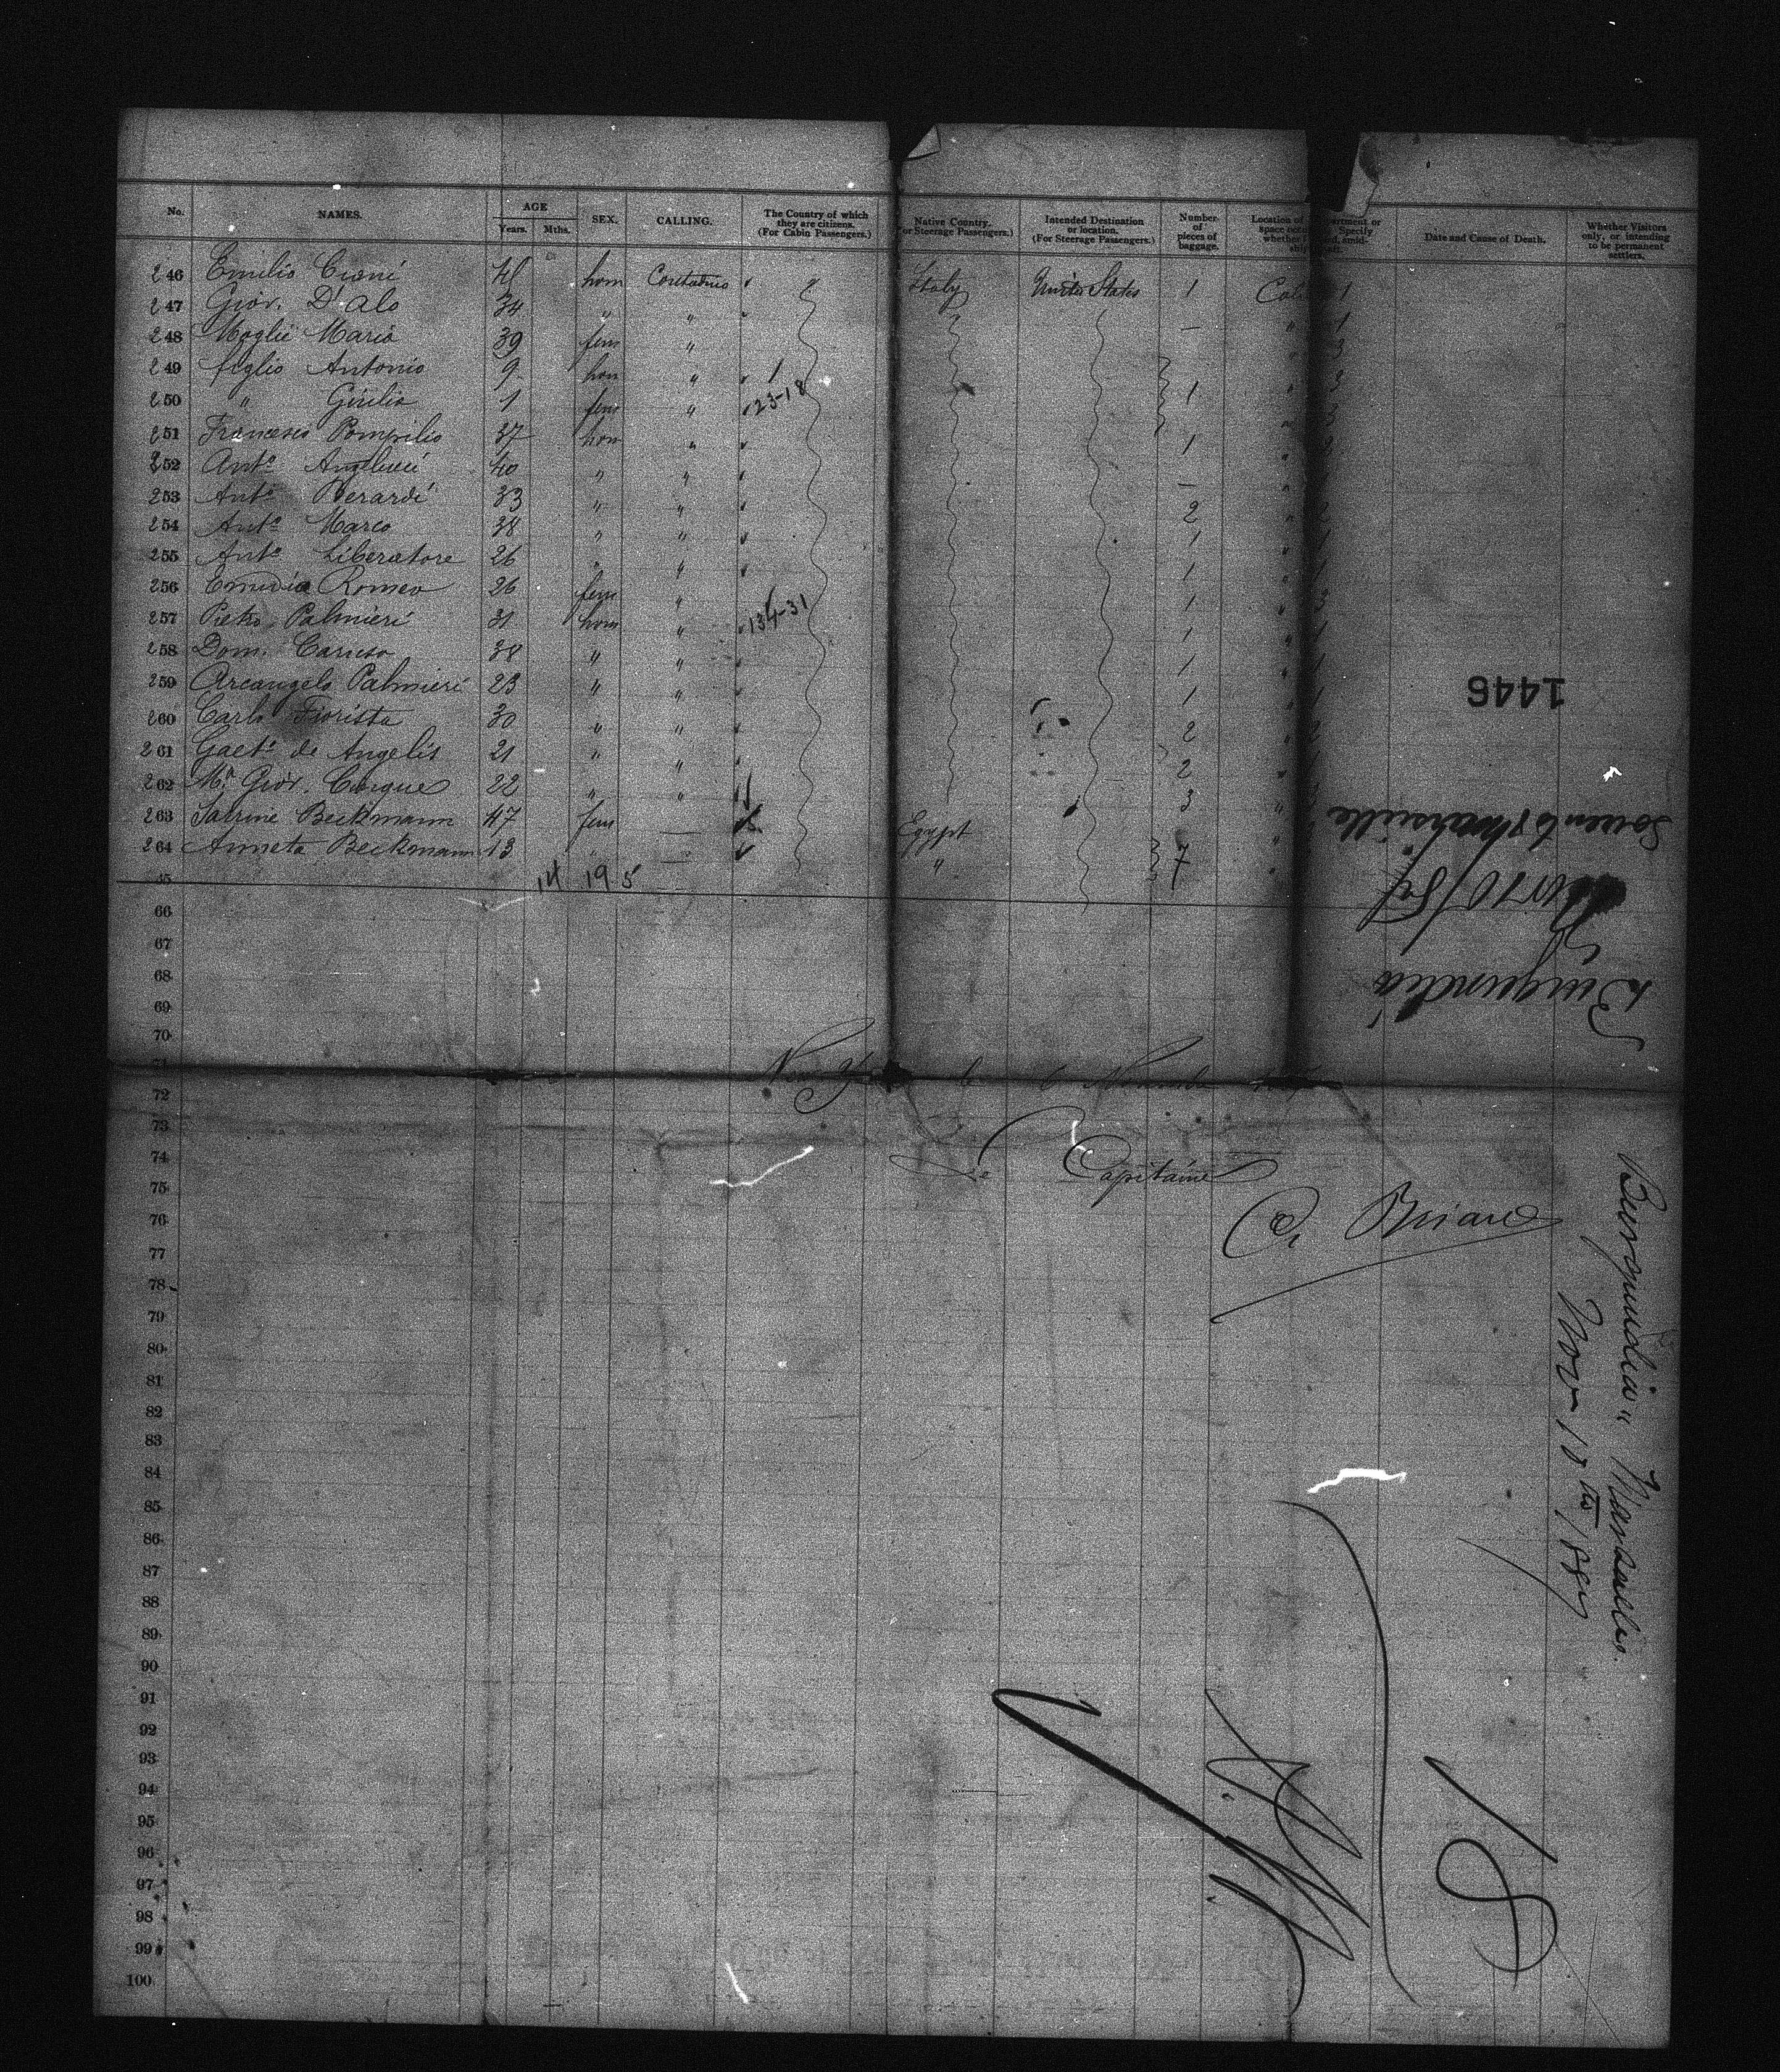 No. NAMES. AGE Years. Mths. SEX. CALLING. The Country of which they are citizens. (For Cabin Passengers.) Native Country. (For Steerage Passengers.) Intended Destination or location. (For Steerage Passengers.) Number of pieces of baggage. Location of Date and Cause of Death. Whether Visitors only, or intending to be permanent settlers.
246 Emilio Cioni hom Contadino " Italy United States 1
247 Giov. D'Alo 34 " " 1
248 Moglie Maria 39 fem " — 3
249 figlio Antonio 9 hom " 1 3
250 " Giulia 1 fem " 23-18 1 3
251 Francesco Pompilio 37 hom " 1 2
252 Anto Angelucci 40 " " —
253 Anto Berardi 33 " " 2 2
254 Anto Marco 38 " " 1 1
255 Anto Liberatore 26 " " 1 1
256 Emidia Romeo 26 fem " 1 3
257 Pietro Palmieri 31 hom " 134-31 1 1
258 Dom. Caruso 38 " " 1 1
259 Arcangelo Palmieri 23 " " 1 1
260 Carlo Fiorista 30 " " 2 2
261 Gaeto de Angelis 21 " " 2
262 Mr Giov. 22 " " 3
263 Beckmann 47 fem — Egypt
264 Anneta Beckmann 13 " — " 7
14 19 5
66
67
68
69
70
72
73
74
75
76
77
78
79
80
81
82
83
84
85
86
87
88
89
90
91
92
93
94
95
96
97
98
99
100
New York le 6 Novembre
Le Capitaine
Briand
1446
Burgundia
Burgundia" Marseilles.
Nov 10th/889
18